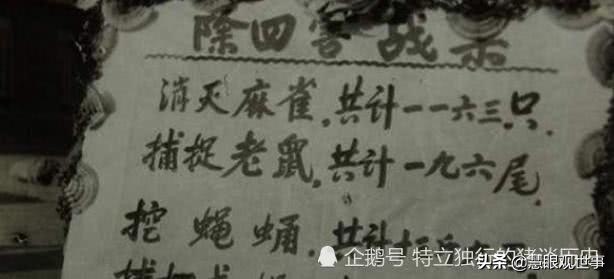 除四害战果
消灭麻雀,共计一一六三只.
捕捉老鼠,共计一九六尾.
挖蝇蛹,共计
企鹅号 特立独行的猪说历史
头条@慧眼观世事